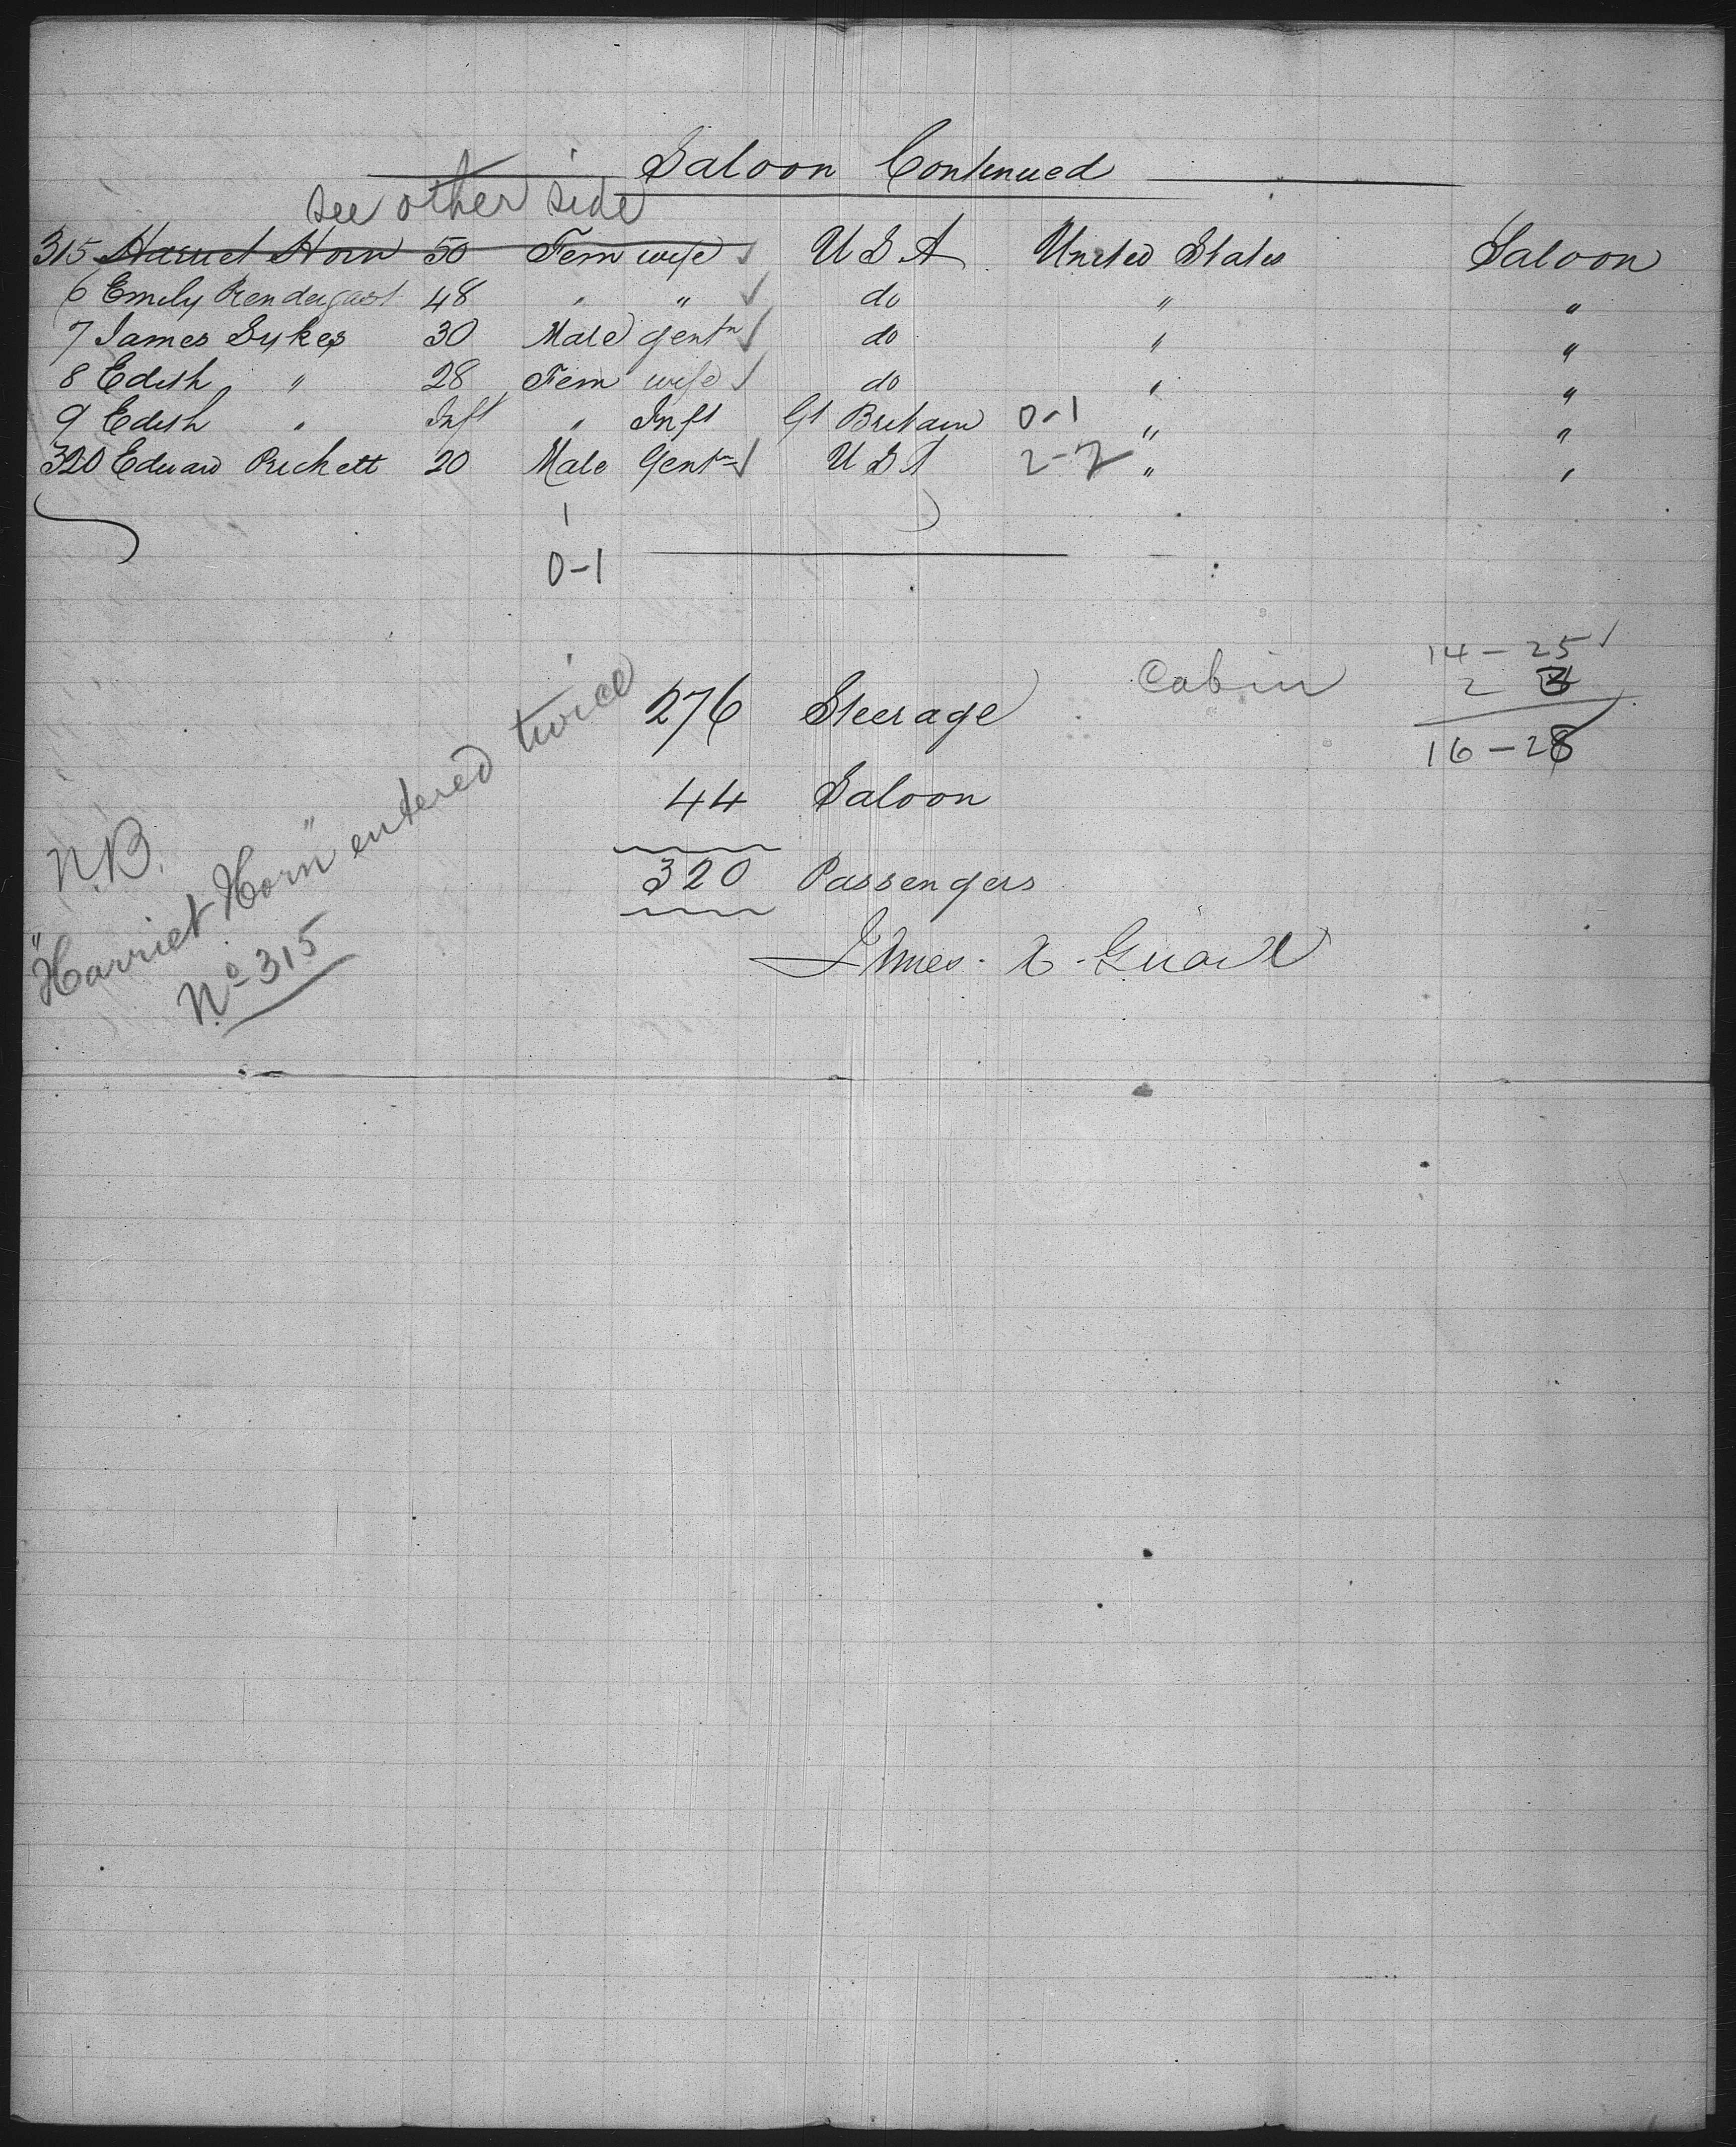 Saloon Continued
see other side
315 Harriet Horn 50 Fem wife ✓ U S A United States Saloon
6 Emily Prendergast 48 " " ✓ do " "
7 James Sykes 30 Male gentn ✓ do " "
8 Edith " 28 Fem wife ✓ do " "
9 Edith " Inft " Inft Gt Britain 0-1 " "
320 Edward Prickett 20 Male Gentn ✓ U S A 2-2 " "
1
0-1
Cabin 14 - 25 ✓
2 3
16 - 28
276 Steerage
44 Saloon
320 Passengers
N.B.
"Harriet Horn" entered twice
No 315